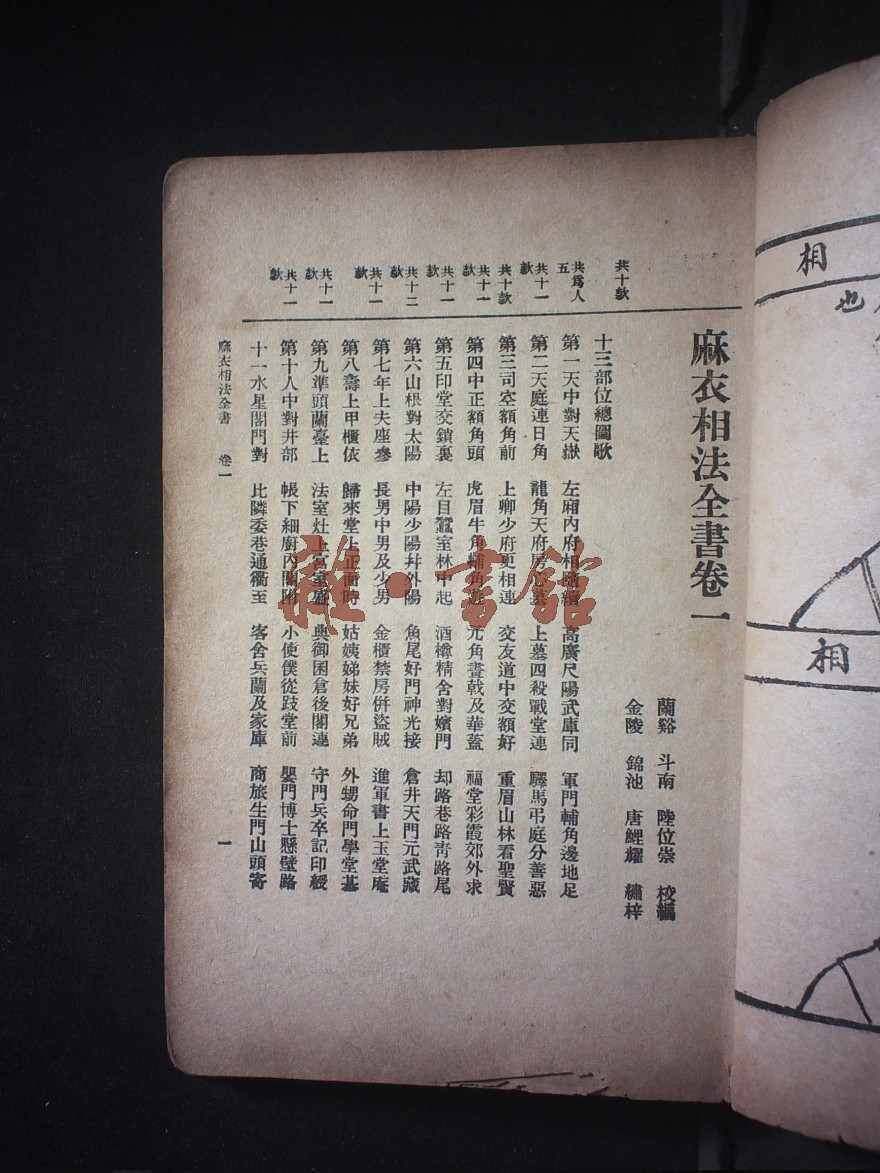 麻衣相法全書卷一
蘭谿 斗南 陸位崇 校編
金陵 錦池 唐鯉耀 繡梓
共十款
十三部位總圖歌
共爲人五
第一天中對天嶽 左廂內府相隨續 高廣尺陽武庫同 軍門輔角邊地足
共十一款
第二天庭連日角 龍角天府房心墓 上墓四殺戰堂連 驛馬弔庭分善惡
共十款
第三司空額角前 上卿少府更相連 交友道中交額好 重眉山林看聖賢
共十一款
第四中正額角頭 虎眉牛角輔角遊 元角斧戟及華蓋 福堂彩霞郊外求
共十一款
第五印堂交鎖裏 左目蠶室林中起 酒樽精舍對嬪門 却路巷路靑路尾
共十二款
第六山根對太陽 中陽少陽幷外陽 魚尾好門神光接 倉井天門元武藏
共十一款
第七年上夫座參 長男中男及少男 金櫃禁房併盜賊 進軍書上玉堂庵
第八壽上甲櫃依 歸來堂上正面時 姑姨娣妹好兄弟 外甥命門學堂基
共十一款
第九準頭蘭臺上 法室灶上宮室盛 典御困倉後閣連 守門兵卒記印綬
共十一款
第十人中對井部 帳下細廚內閣附 小使僕從跂堂前 嬰門博士懸壁路
十一水星閣門對 比隣委巷通衢至 客舍兵蘭及家庫 商旅生門山頭寄
麻衣相法全書 卷一
一
相
也
相
雜·書館